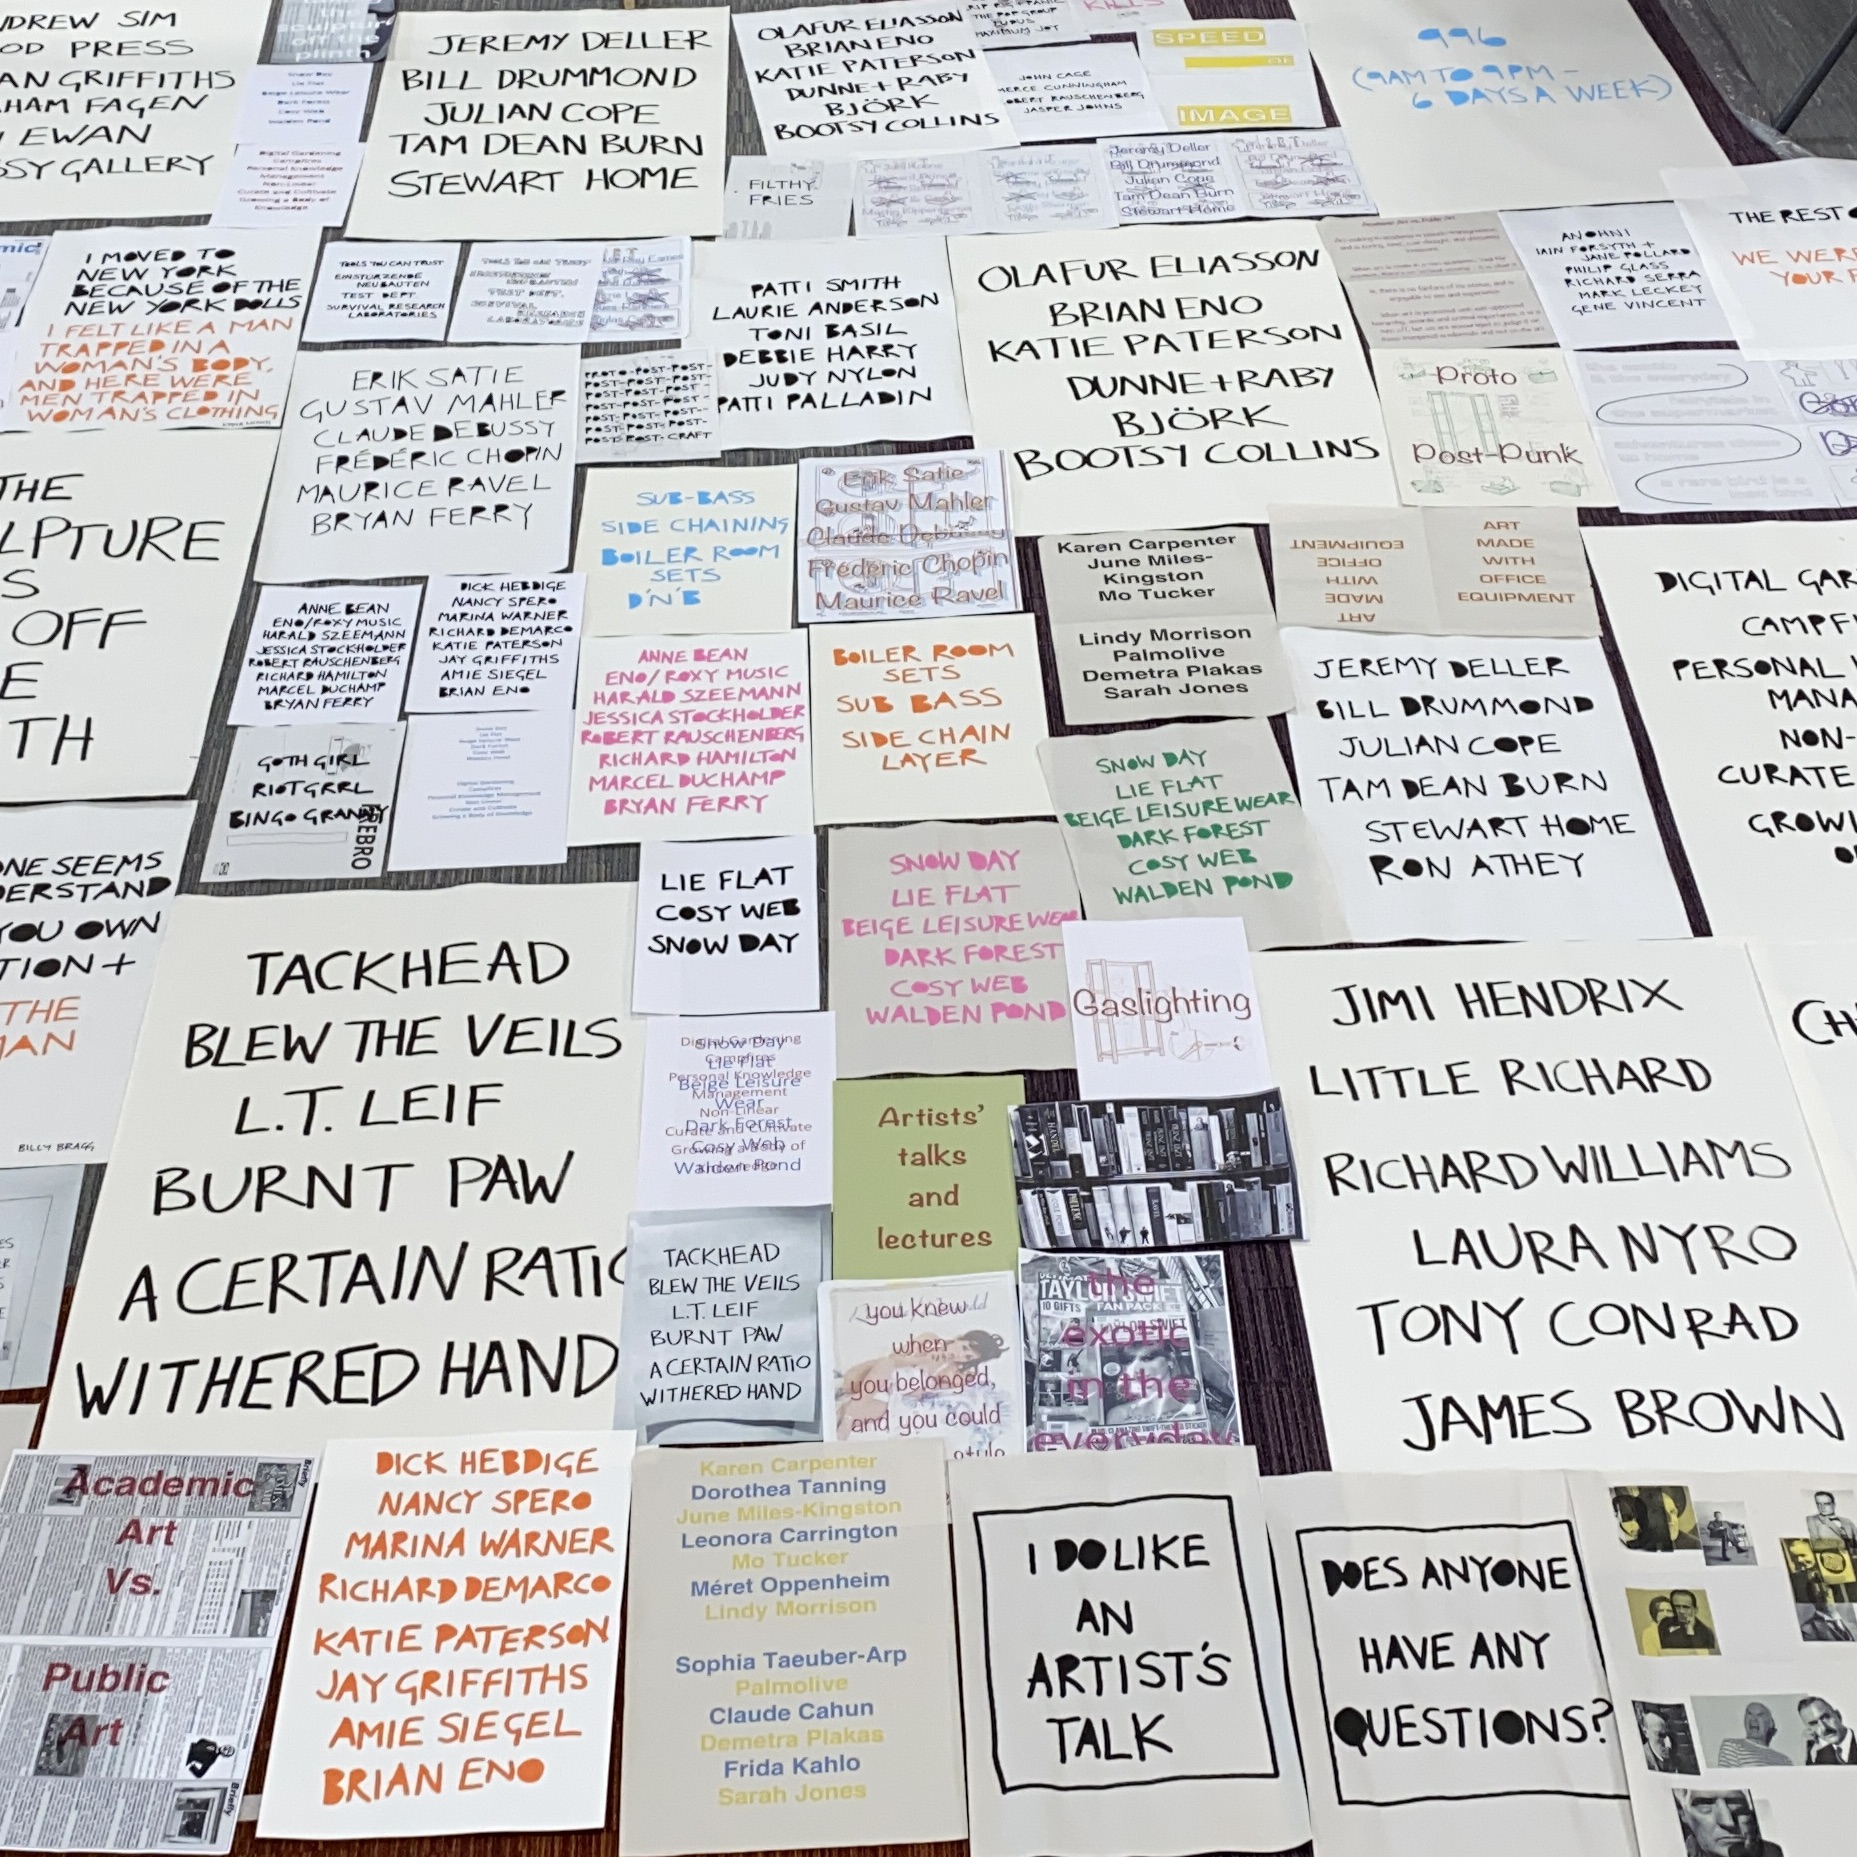 DREW SIM
OD PRESS
AN GRIFFITHS
HAM FAGEN
EWAN
SSY GALLERY
Snow Day
Lie Flat
Beige Leisure Wear
Dark Forest
Cosy Web
Walden Pond
Digital Gardening
Campfires
Personal Knowledge
Management
Non-Linear
Curate and Cultivate
Growing a Body of
Knowledge
JEREMY DELLER
BILL DRUMMOND
JULIAN COPE
TAM DEAN BURN
STEWART HOME
OLAFUR ELIASSON
BRIAN ENO
KATIE PATERSON
DUNNE + RABY
BJÖRK
BOOTSY COLLINS
THE POP GROUP
MAXIMUM JOY
KILLS
JOHN CAGE
MERCE CUNNINGHAM
ROBERT RAUSCHENBERG
JASPER JOHNS
SPEED
OF
IMAGE
996
(9AM TO 9PM –
6 DAYS A WEEK)
FILTHY
FRIES
Jeremy Deller
Bill Drummond
Julian Cope
Tam Dean Burn
Stewart Home
I MOVED TO
NEW YORK
BECAUSE OF THE
NEW YORK DOLLS
I FELT LIKE A MAN
TRAPPED IN A
WOMAN'S BODY,
AND HERE WERE
MEN TRAPPED IN
WOMAN'S CLOTHING
TOOLS YOU CAN TRUST
EINSTÜRZENDE
NEUBAUTEN
TEST DEPT
SURVIVAL RESEARCH
LABORATORIES
PATTI SMITH
LAURIE ANDERSON
TONI BASIL
DEBBIE HARRY
JUDY NYLON
PATTI PALLADIN
OLAFUR ELIASSON
BRIAN ENO
KATIE PATERSON
DUNNE + RABY
BJÖRK
BOOTSY COLLINS
ANOHNI
IAIN FORSYTH +
JANE POLLARD
PHILIP GLASS
RICHARD SERRA
MARK LECKEY
GENE VINCENT
THE REST
WE WERE
YOUR
ERIK SATIE
GUSTAV MAHLER
CLAUDE DEBUSSY
FRÉDÉRIC CHOPIN
MAURICE RAVEL
BRYAN FERRY
PROTO-POST-POST-
POST-POST-POST-
POST-POST-POST-
POST-POST-POST-
POST-POST-POST-
POST-POST-CRAFT
Proto
Post-Punk
THE
LPTURE
S
OFF
E
TH
SUB-BASS
SIDE CHAINING
BOILER ROOM
SETS
D'N'B
Erik Satie
Gustav Mahler
Claude Debussy
Frédéric Chopin
Maurice Ravel
Karen Carpenter
June Miles-
Kingston
Mo Tucker
Lindy Morrison
Palmolive
Demetra Plakas
Sarah Jones
ART
MADE
WITH
OFFICE
EQUIPMENT
ART
MADE
WITH
OFFICE
EQUIPMENT
DIGITAL GAR
CAMPF
PERSONAL
MANA
NON-
CURATE
GROWI
ANNE BEAN
ENO/ROXY MUSIC
HARALD SZEEMANN
JESSICA STOCKHOLDER
ROBERT RAUSCHENBERG
RICHARD HAMILTON
MARCEL DUCHAMP
BRYAN FERRY
DICK HEBDIGE
NANCY SPERO
MARINA WARNER
RICHARD DEMARCO
KATIE PATERSON
JAY GRIFFITHS
AMIE SIEGEL
BRIAN ENO
ANNE BEAN
ENO/ROXY MUSIC
HARALD SZEEMANN
JESSICA STOCKHOLDER
ROBERT RAUSCHENBERG
RICHARD HAMILTON
MARCEL DUCHAMP
BRYAN FERRY
BOILER ROOM
SETS
SUB BASS
SIDE CHAIN
LAYER
JEREMY DELLER
BILL DRUMMOND
JULIAN COPE
TAM DEAN BURN
STEWART HOME
RON ATHEY
GOTH GIRL
RIOT GRRL
BINGO GRANNY
SNOW DAY
LIE FLAT
BEIGE LEISURE WEAR
DARK FOREST
COSY WEB
WALDEN POND
NE SEEMS
DERSTAND
YOU OWN
TION +
THE
AN
BILLY BRAGG
LIE FLAT
COSY WEB
SNOW DAY
SNOW DAY
LIE FLAT
BEIGE LEISURE WEAR
DARK FOREST
COSY WEB
WALDEN POND
Gaslighting
TACKHEAD
BLEW THE VEILS
L.T. LEIF
BURNT PAW
A CERTAIN RATIO
WITHERED HAND
JIMI HENDRIX
LITTLE RICHARD
RICHARD WILLIAMS
LAURA NYRO
TONY CONRAD
JAMES BROWN
CH
Digital Gardening
Snow Day
Campfires
Lie Flat
Personal Knowledge
Beige Leisure
Management
Wear
Non-Linear
Dark Forest
Curate and Cultivate
Cosy Web
Growing a Body of
Walden Pond
Artists'
talks
and
lectures
TACKHEAD
BLEW THE VEILS
L.T. LEIF
BURNT PAW
A CERTAIN RATIO
WITHERED HAND
you knew
when
you belonged,
and you could
TAYLOR SWIFT
10 GIFTS FAN PACK
the
exotic
in the
everyday
Academic
Art
Vs.
Public
Art
Briefly
Briefly
DICK HEBDIGE
NANCY SPERO
MARINA WARNER
RICHARD DEMARCO
KATIE PATERSON
JAY GRIFFITHS
AMIE SIEGEL
BRIAN ENO
Karen Carpenter
Dorothea Tanning
June Miles-Kingston
Leonora Carrington
Mo Tucker
Méret Oppenheim
Lindy Morrison
Sophia Taeuber-Arp
Palmolive
Claude Cahun
Demetra Plakas
Frida Kahlo
Sarah Jones
I DO LIKE
AN
ARTIST'S
TALK
DOES ANYONE
HAVE ANY
QUESTIONS?